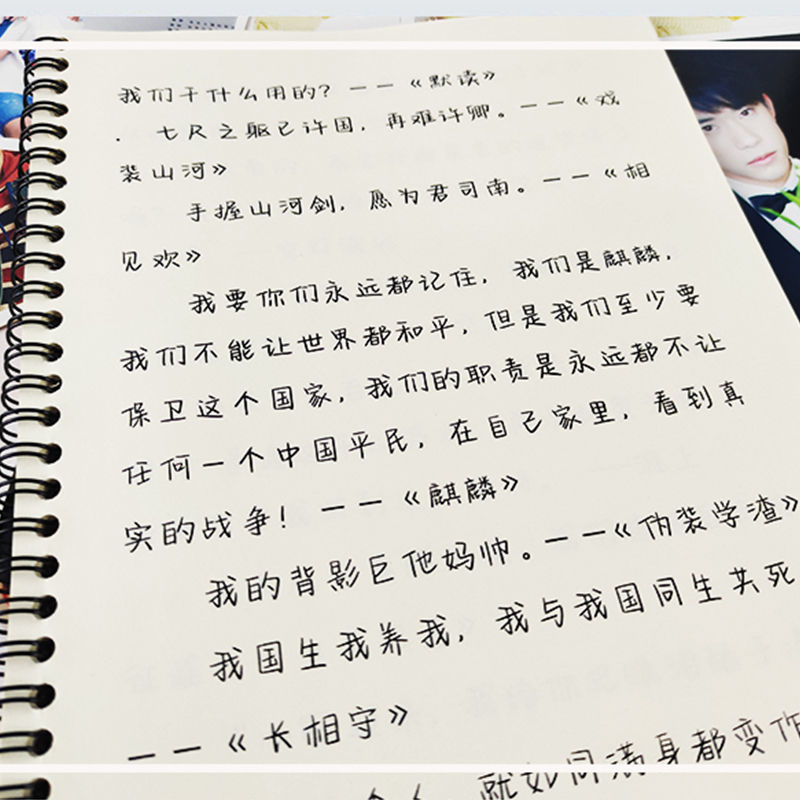 我们干什么用的？——《默读》
．七尺之躯已许国，再难许卿。——《戏
装山河》
手握山河剑，愿为君司南。——《相
见欢》
我要你们永远都记住，我们是麒麟，
我们不能让世界都和平，但是我们至少要
保卫这个国家，我们的职责是永远都不让
任何一个中国平民，在自己家里，看到真
实的战争！——《麒麟》
我的背影巨他妈帅。——《伪装学渣》
我国生我养我，我与我国同生共死
——《长相守》
就如同满身都变作